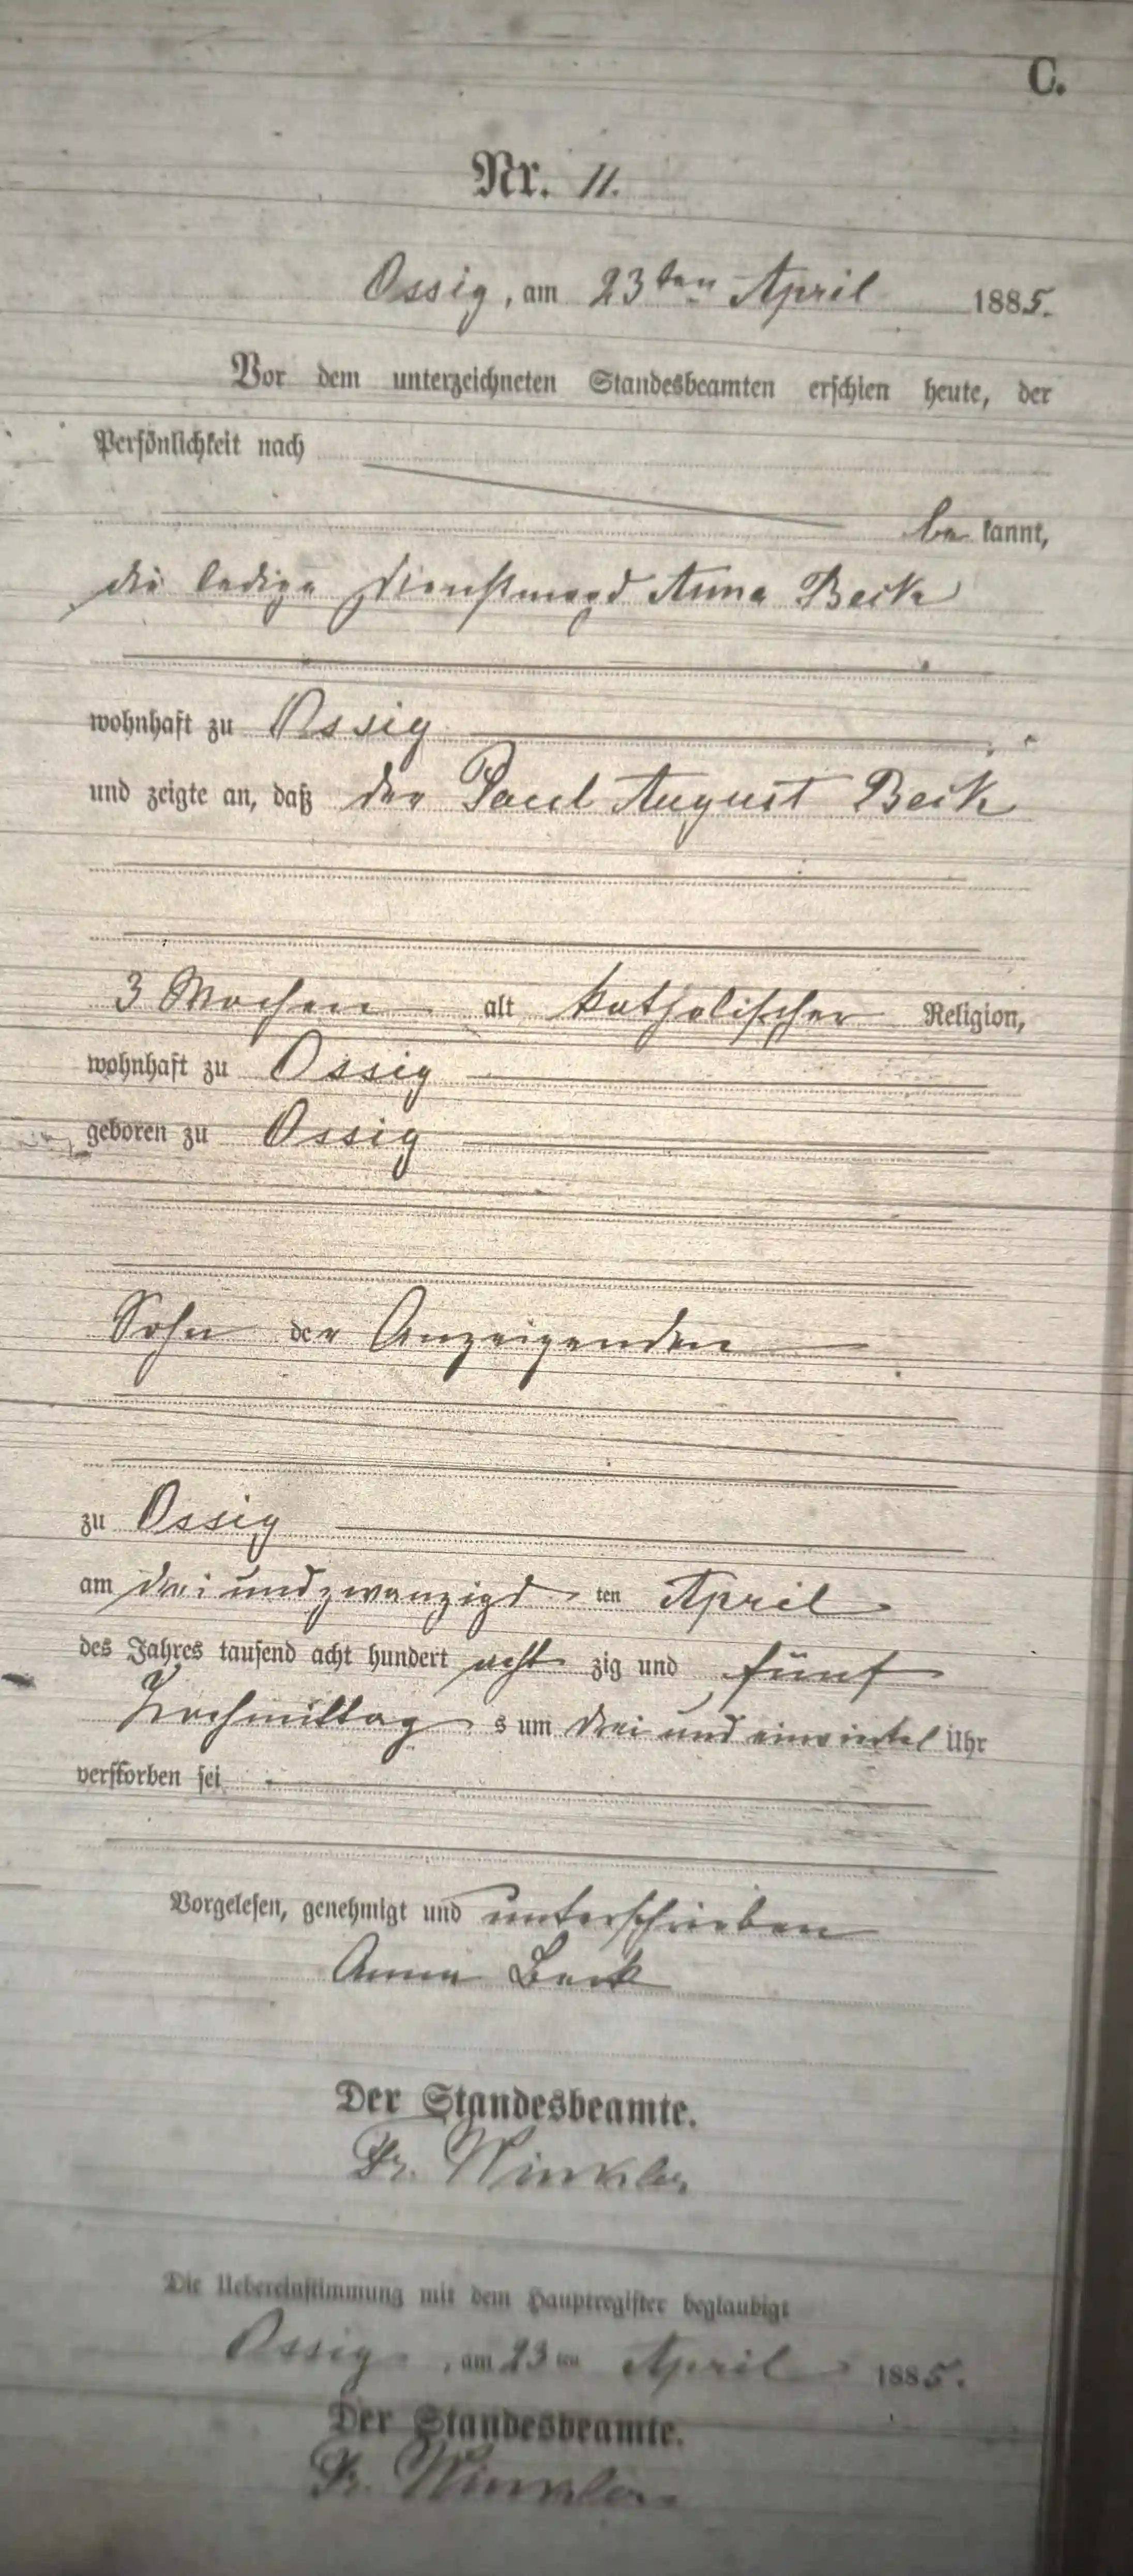 C.
Nr. 11.
Ossig, am 23ten April 1885.
Vor dem unterzeichneten Standesbeamten erschien heute, der
Persönlichkeit nach
be kannt,
die ledige Dienstmagd Anna Beck
wohnhaft zu Ossig
und zeigte an, daß der Paul August Beck
3 Wochen alt katholischer Religion,
wohnhaft zu Ossig
geboren zu Ossig
Sohn der Anzeigenden
zu Ossig
am drei und zwanzigs ten April
des Jahres tausend acht hundert acht zig und fünf
Nachmittag s um drei und einviertel Uhr
verstorben sei
Vorgelesen, genehmigt und unterschrieben
Anna Beck
Der Standesbeamte.
Fr. Winkler
Die Uebereinstimmung mit dem Hauptregister beglaubigt
Ossig, am 23ten April 1885.
Der Standesbeamte.
Fr. Winkler